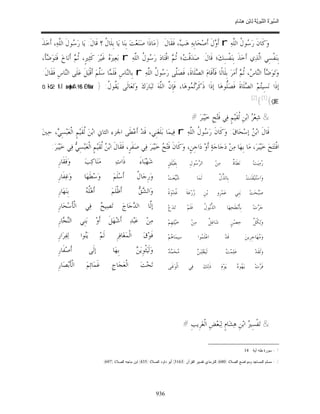 السيرة النبوية لابن هشام
وَكَانَ رَسُولُ اللَّهِ أَوَّلَ أَصْحَابِهِ هَبَّ، فَقَالَ: (مَاذَا صَنَعْتَ بِنَا يَا بِلَالُ؟ قَالَ: يَا رَسُولَ اللَّهِ، أَخَذَ
بِنَفْسِي الَّذِي أَخَذَ بِنَفْسِكَ؛ قَالَ: صَدَقْتَ؛ ثُمَّ اقْتَادَ رَسُولُ اللَّهِ بَعِيرَهُ غَيْرَ كَثِيرٍ، ثُمَّ أَنَاخَ فَتَوَضَّأَ،
وَتَوَضَّأَ النَّاسُ، ثُمَّ أَمَرَ بِلَالًا فَأَقَامَ الصَّلَاةَ، فَصَلَّى رَسُولُ اللَّهِ بِالنَّاسِ فَلَمَّا سَلَّمَ أَقْبَلَ عَلَى النَّاسِ فَقَالَ:
إذَا نَسِيتُمْ الصَّلَاةَ فَصَلُّوهَا إذَا ذَكَرْتُمُوهَا، فَإِنَّ اللَّهَ تَبَارَكَ وَتَعَالَى يَقُولُ:
شِعْرُ ابْنِ لُقَيْمٍ فِي فَتْحِ خَيْبَرَ
قَالَ ابْنُ إسْحَاقَ: وَكَانَ رَسُولُ اللَّهِ فِيمَا بَلَغَنِي، قَدْ أَعْطَى ابْنَ لُقَيْمٍ الْعَبْسِيَّ، حِينَ
افْتَتَحَ خَيْبَرَ، مَا بِهَا مِنْ دَجَاجَةٍ أَوْ دَاجِنٍ، وَكَانَ فَتْحُ خَيْبَرَ فِي صَفَرٍ، فَقَالَ ابْنُ لُقَيْمٍ الْعَبْسِيُّ فِي خَيْبَرَ:
رُمِيَتْ نَطَاةُ مِنَ الرَّسُولِ بِفَيْلَقٍ شَهْبَاءَ ذَاتِ مَنَاكِبَ وَفَقَارِ
وَاسْتَيْقَنَتْ بِالذُّلِّ لَمَّا شُيِّعَتْ وَرِجَالُ أَسْلَمَ وَسْطَهَا وَغِفَارِ
صَبَّحَتْ بَنِي عَمْرِو بْنِ زُرْعَةَ غُدْوَةً وَالشَّقُّ أَظْلَمَ أَهْلُهُ بِنَهَارِ
جَرَّتْ بِأَبْطَحِهَا الذُّيُولُ فَلَمْ تَدَعْ إلَّا الدَّجَاجَ تَصِيحُ فِي الْأَسْحَارِ
وَلِكُلِّ حِصْنٍ شَاغِلٌ مِنْ خَيْلِهِمْ مِنْ عَبْدِ أَشْهَلَ أَوْ بَنِي النَّجَّارِ
وَمُهَاجِرِينَ قَدْ اعْلَمُوا سِيمَاهُمُ فَوْقَ الْمَغَافِرِ لَمْ يَنُوا لِفِرَارِ
وَلَقَدْ عَلِمْتُ لَيَغْلِبَنَّ مُحَمَّدٌ وَلَيَثْوِيَنَّ بِهَا إلَى أَصْفَارِ
فَرَّتْ يَهُودُ يَوْمَ ذَلِكَ فِي الْوَغَى تَحْتَ الْعَجَاجِ غَمَائِمَ الْأَبْصَارِ
تَفْسِيرُ ابْنِ هِشَامٍ لِبَعْضِ الْغَرِيبِ
سورة طه آية 14
936